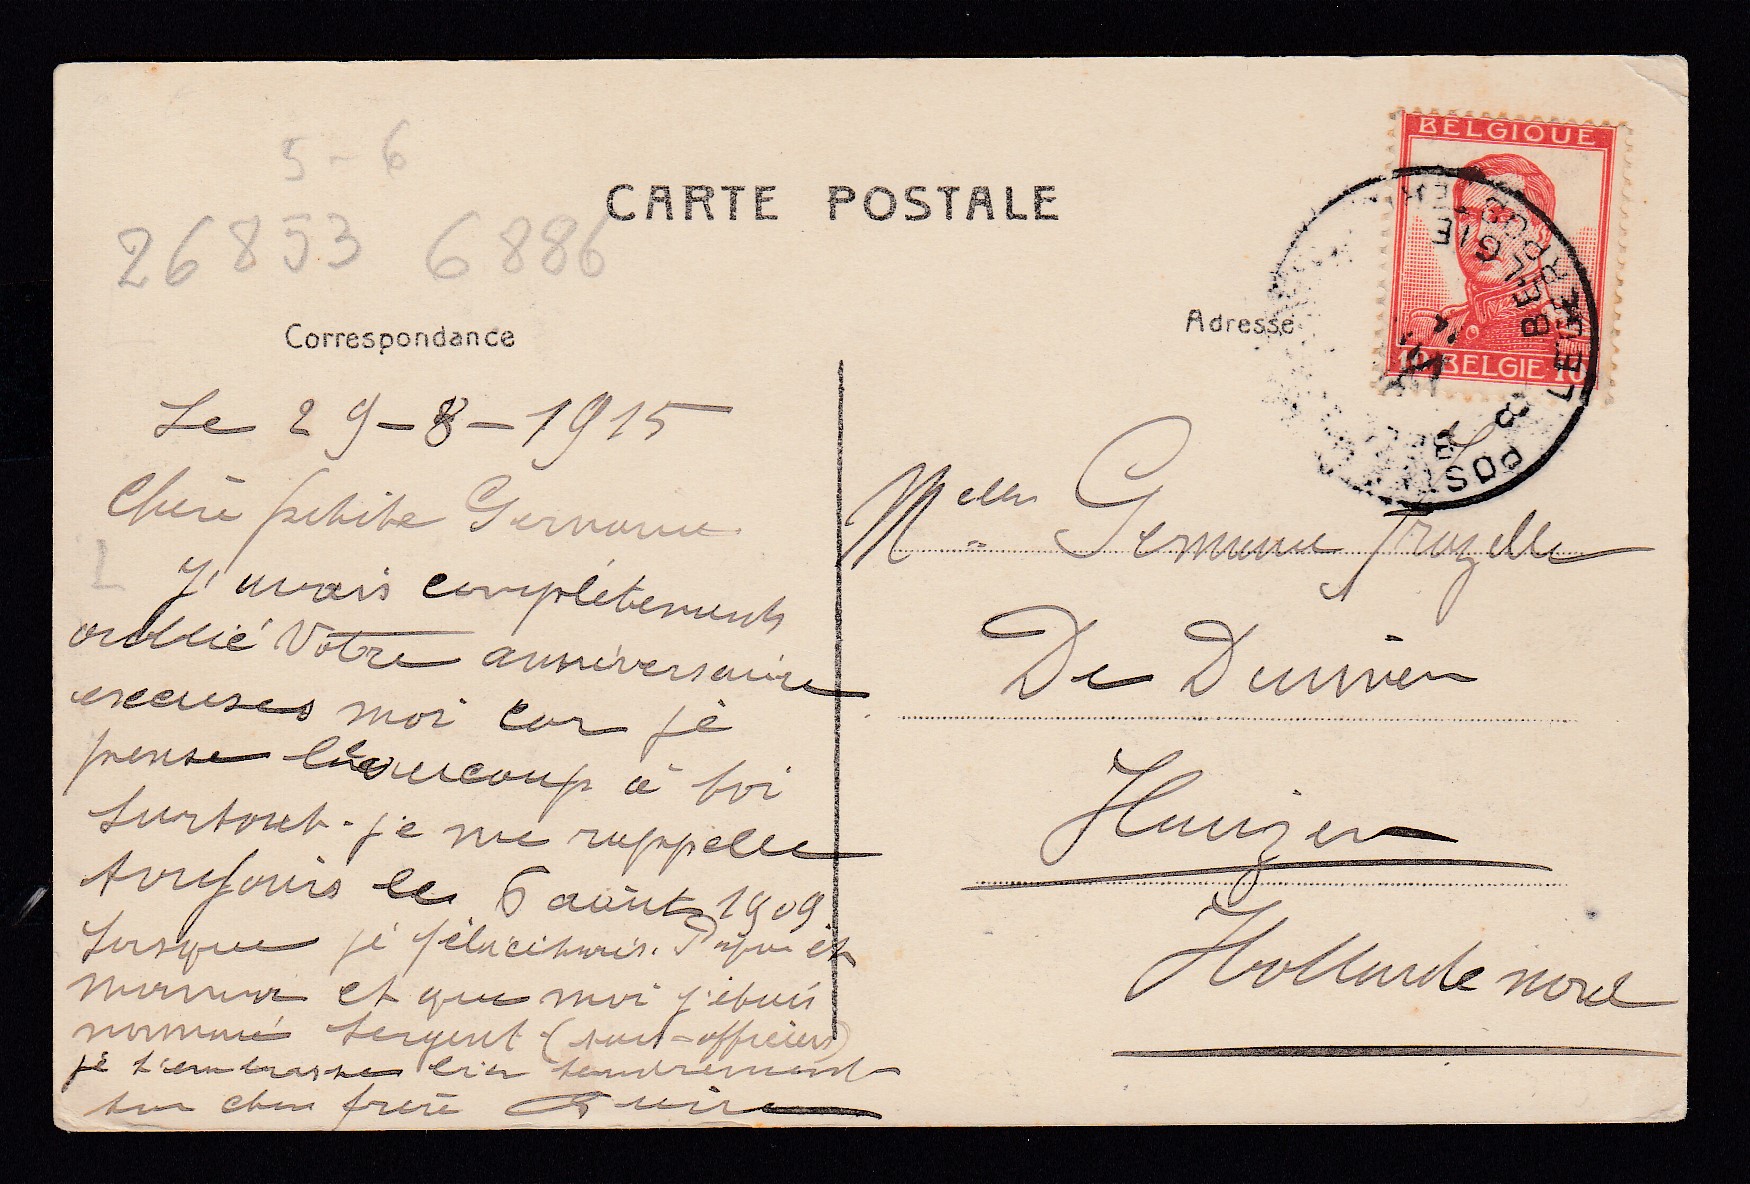 5 - 6
26853 6886
CARTE POSTALE
BELGIQUE
10 BELGIE 10
LEGERPOST
BELGIE
POST
Correspondance
Adresse
Le 29-8-1915
Chère petite Germaine
J'avais complètements
oublié Votre anniversaire
excuses moi car je
pense beaucoup à toi
surtout - je me rappelle
toujours le 6 août 1909
lorsque je félicitais Papa et
maman et que moi j'étais
nommé sergent (sous-officier)
je t'embrasse bien tendrement
ton cher frère
L
Melle Germaine
De Duinen
Huizen
Hollande nord